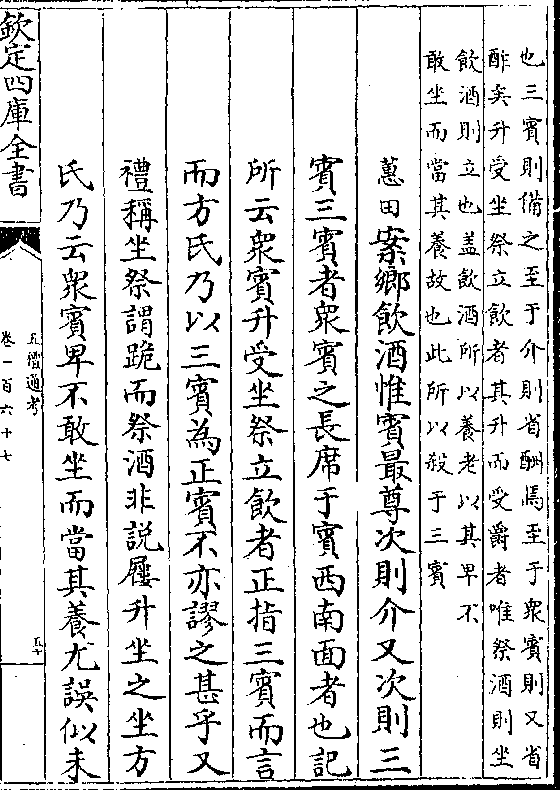 也三賓則備之至于介則省酬焉至于衆賓則又省
酢矣升受坐祭立飲者其升而受爵者唯祭酒則坐
飲酒則立也盖飲酒所以養老以其卑不
敢坐而當其養故也此所以殺于三賓
蕙田案鄉飲酒惟賓最尊次則介又次則三
賓三賓者衆賓之長席于賓西南面者也記
所云衆賓升受坐祭立飲者正指三賓而言
而方氏乃以三賓為正賓不亦謬之甚乎又
禮稱坐祭謂跪而祭酒非説屨升坐之坐方
氏乃云衆賓卑不敢坐而當其養尤誤似未
欽定四庫全書
五禮通考
卷一百六十七
五十